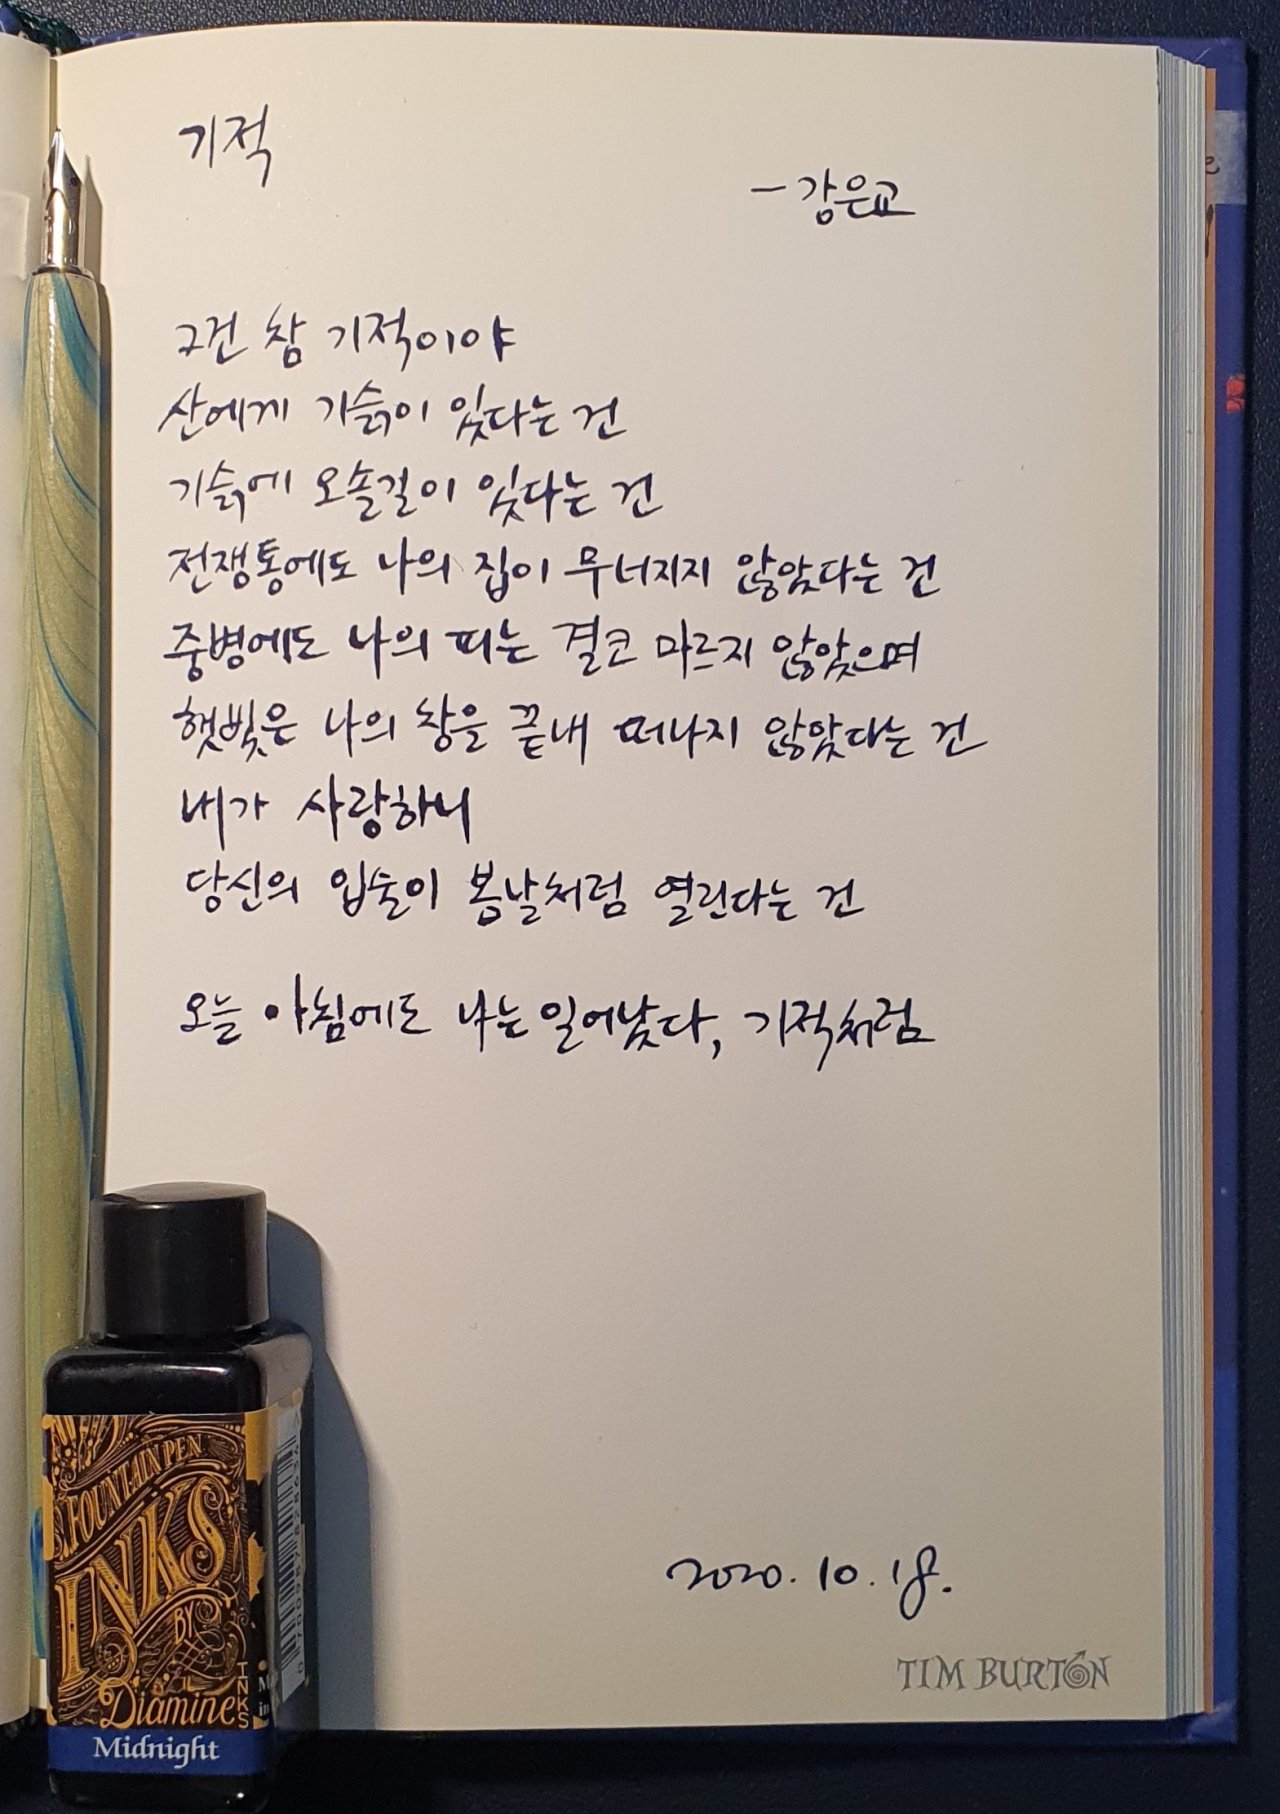 기적
- 강은교
그건 참 기적이야
산에게 기슭이 있다는 건
기슭에 오솔길이 있다는 건
전쟁통에도 나의 집이 무너지지 않았다는 건
중병에도 나의 피는 결코 마르지 않았으며
햇빛은 나의 창을 끝내 떠나지 않았다는 건
내가 사랑하니
당신의 입술이 봄날처럼 열린다는 건
오늘 아침에도 나는 일어났다, 기적처럼
2020. 10. 18.
TIM BURTON
FOUNTAIN PEN
INKS
BY
Diamine
INKS
Midnight